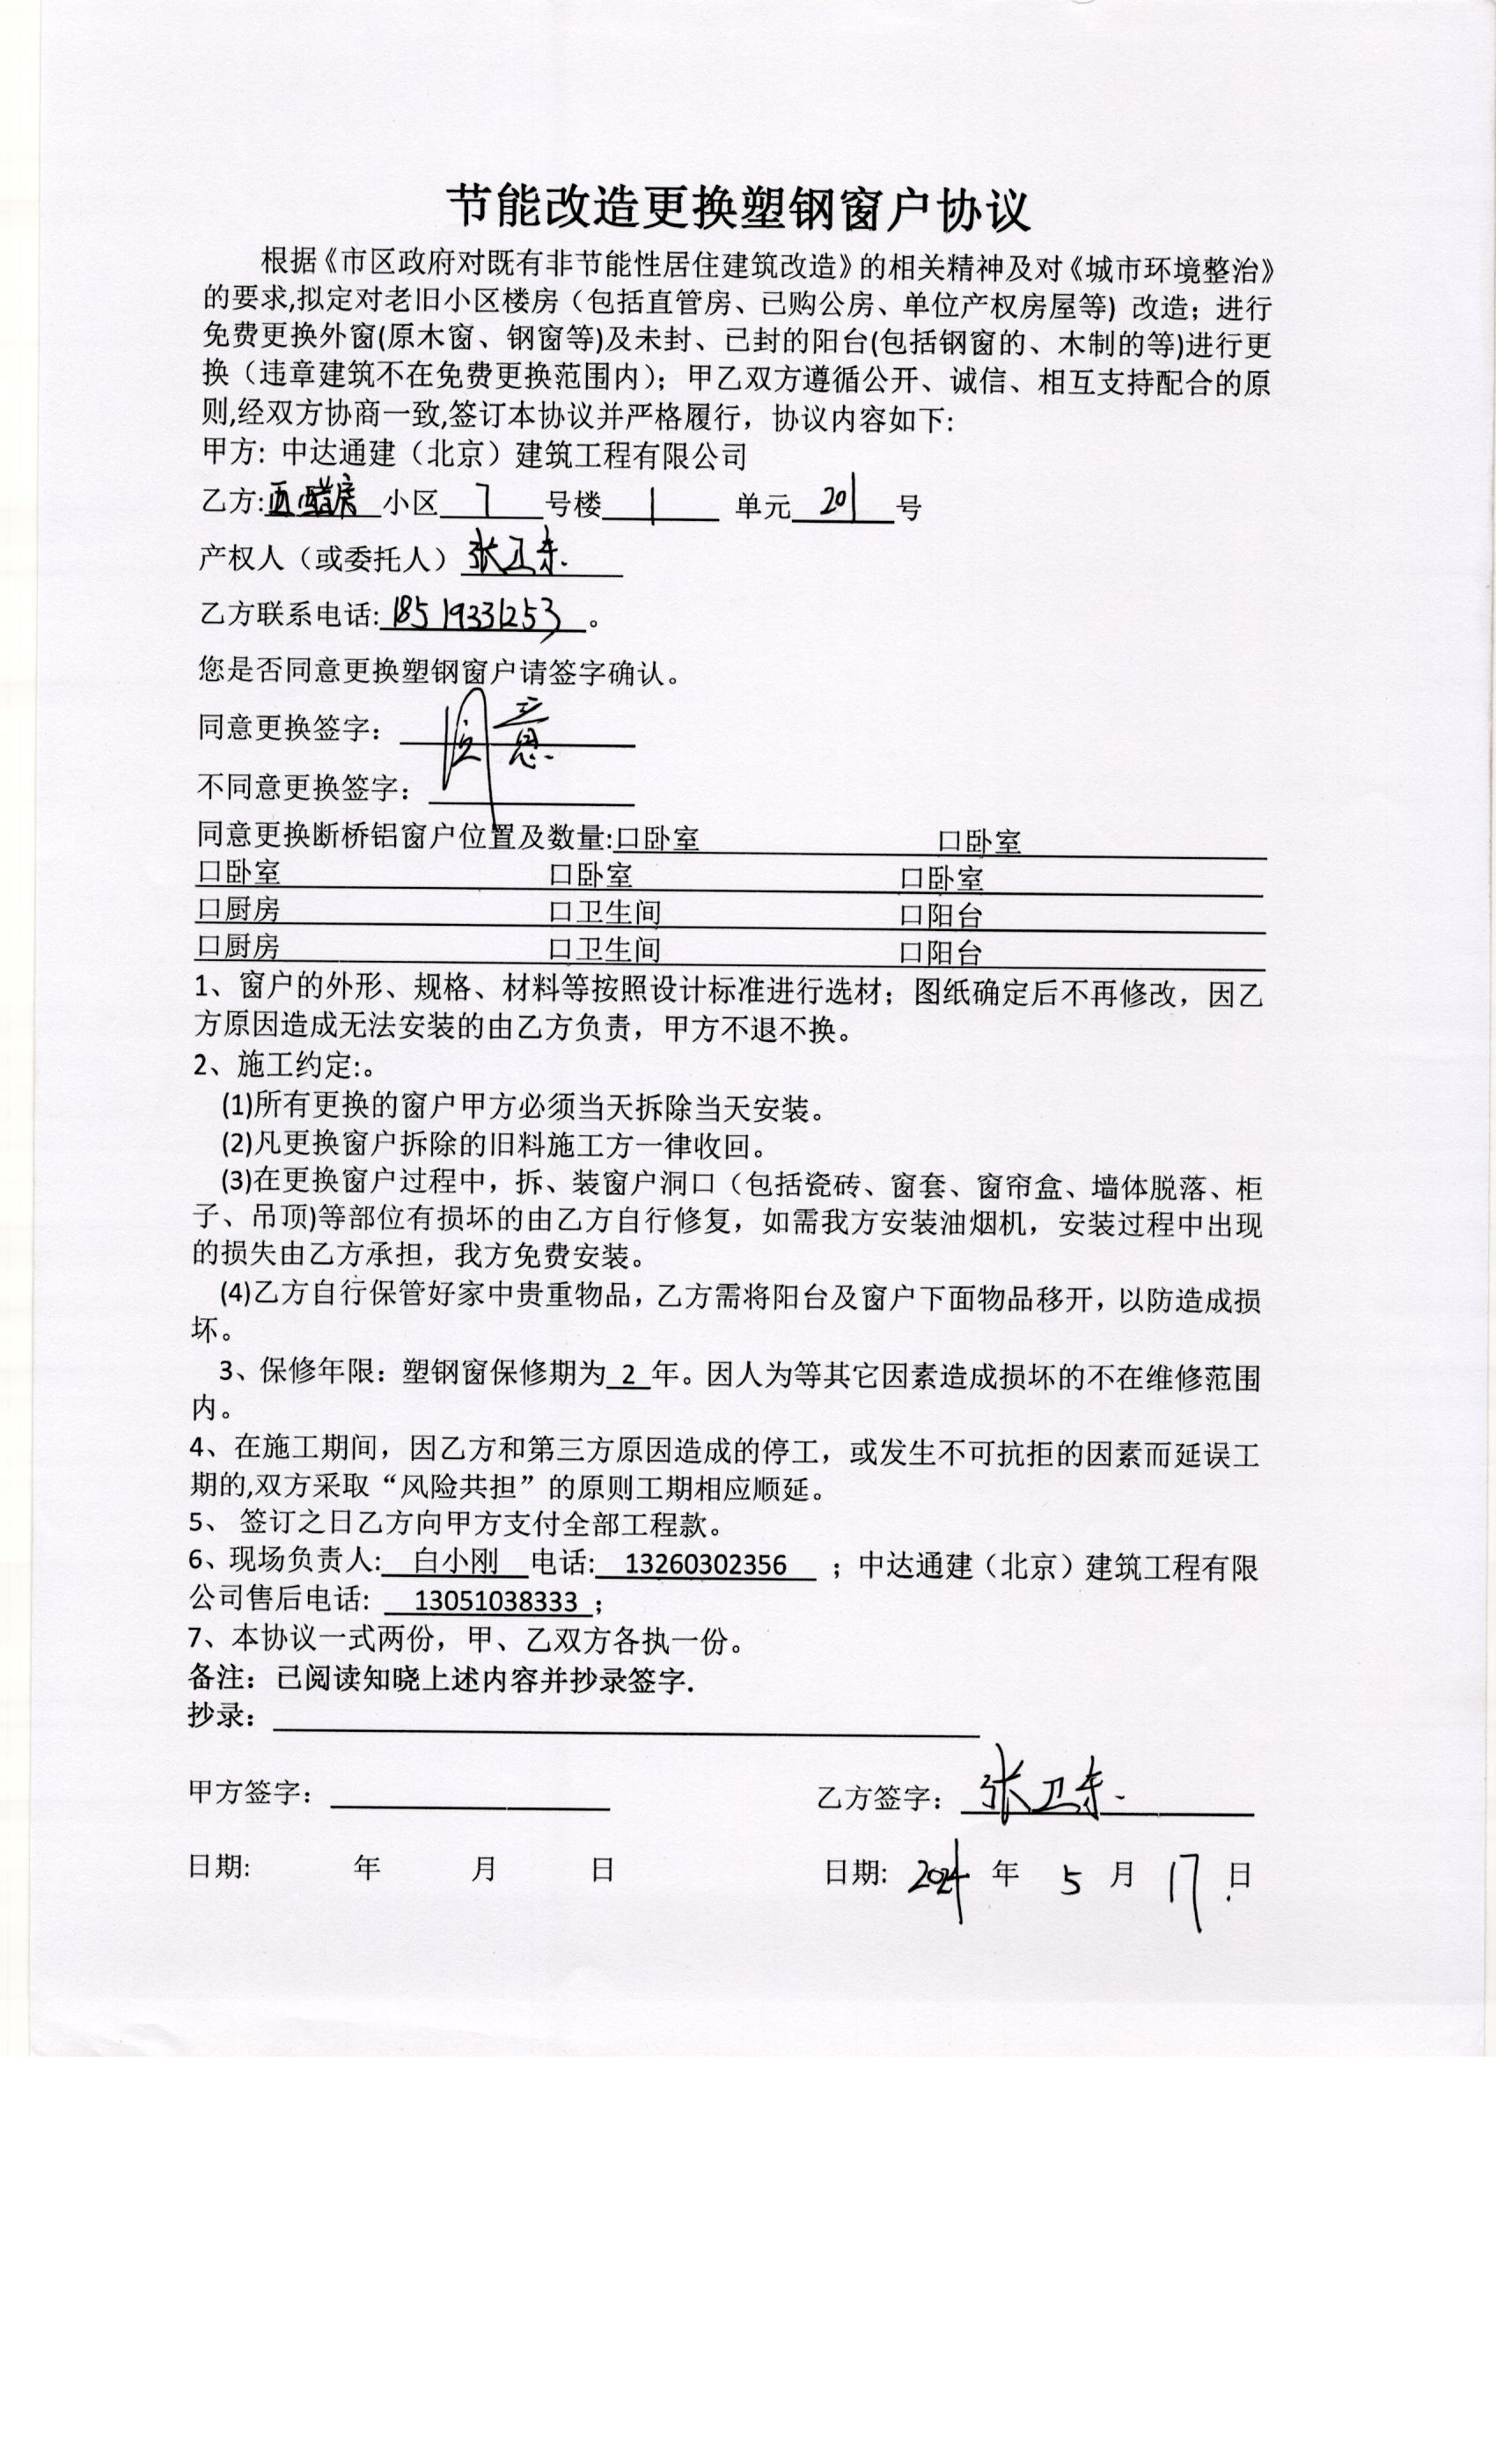 节能改造更换塑钢窗户协议
根据《市区政府对既有非节能性居住建筑改造》的相关精神及对《城市环境整治》
的要求,拟定对老旧小区楼房（包括直管房、已购公房、单位产权房屋等) 改造；进行
免费更换外窗(原木窗、钢窗等)及未封、已封的阳台(包括钢窗的、木制的等)进行更
换（违章建筑不在免费更换范围内）；甲乙双方遵循公开、诚信、相互支持配合的原
则,经双方协商一致,签订本协议并严格履行，协议内容如下:
甲方: 中达通建（北京）建筑工程有限公司
乙方: 小区 7 号楼 1 单元 201 号
产权人（或委托人）张卫东
乙方联系电话: 18519331253 。
您是否同意更换塑钢窗户请签字确认。
同意更换签字： 同意
不同意更换签字：
同意更换断桥铝窗户位置及数量:口卧室 口卧室
口卧室 口卧室 口卧室
口厨房 口卫生间 口阳台
口厨房 口卫生间 口阳台
1、窗户的外形、规格、材料等按照设计标准进行选材；图纸确定后不再修改，因乙
方原因造成无法安装的由乙方负责，甲方不退不换。
2、施工约定:。
(1)所有更换的窗户甲方必须当天拆除当天安装。
(2)凡更换窗户拆除的旧料施工方一律收回。
(3)在更换窗户过程中，拆、装窗户洞口（包括瓷砖、窗套、窗帘盒、墙体脱落、柜
子、吊顶)等部位有损坏的由乙方自行修复，如需我方安装油烟机，安装过程中出现
的损失由乙方承担，我方免费安装。
(4)乙方自行保管好家中贵重物品，乙方需将阳台及窗户下面物品移开，以防造成损
坏。
3、保修年限：塑钢窗保修期为 2 年。因人为等其它因素造成损坏的不在维修范围
内。
4、在施工期间，因乙方和第三方原因造成的停工，或发生不可抗拒的因素而延误工
期的,双方采取“风险共担”的原则工期相应顺延。
5、 签订之日乙方向甲方支付全部工程款。
6、现场负责人: 白小刚 电话: 13260302356 ；中达通建（北京）建筑工程有限
公司售后电话: 13051038333 ；
7、本协议一式两份，甲、乙双方各执一份。
备注：已阅读知晓上述内容并抄录签字.
抄录：
甲方签字： 乙方签字：张卫东
日期: 年 月 日 日期: 2024 年 5 月 17 日